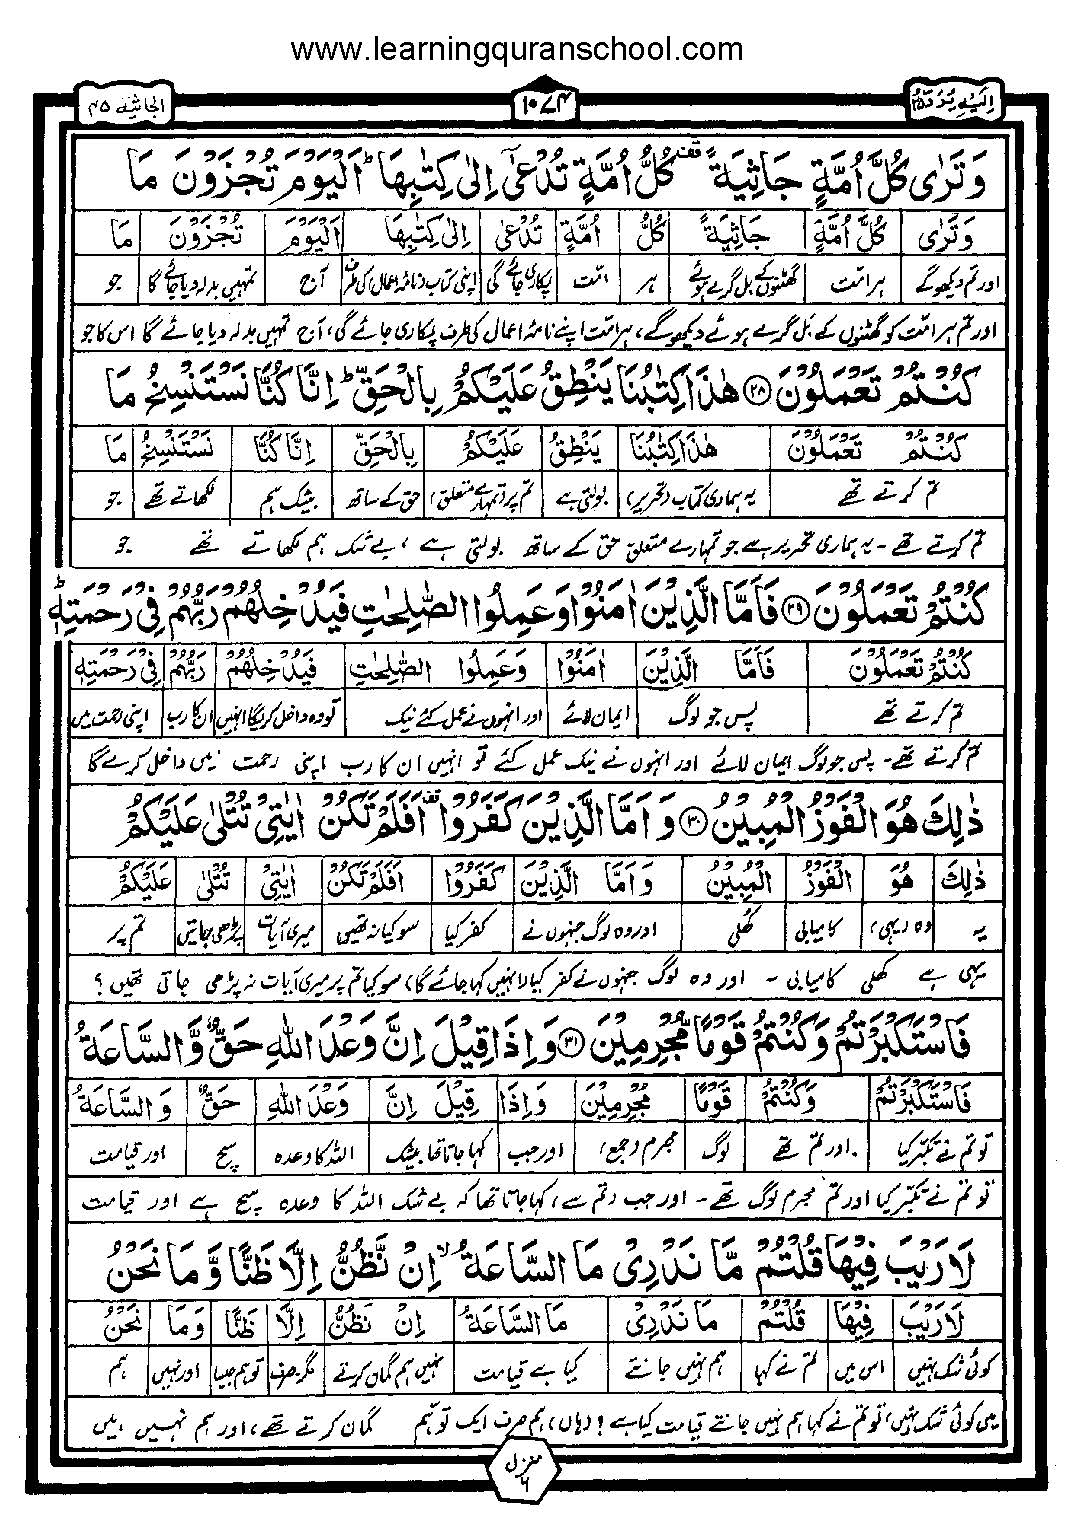 www.learningquranschool.com
الجاثية ٤٥
١٠٧٤
اِلَيْهِ يُرَدُّ ٢٥
وَتَرٰى كُلَّ اُمَّةٍ جَاثِيَةً ۫ كُلُّ اُمَّةٍ تُدْعٰۤى اِلٰى كِتٰبِهَا ؕ اَلْيَوْمَ تُجْزَوْنَ مَا
وَتَرٰى كُلَّ اُمَّةٍ جَاثِيَةً كُلُّ اُمَّةٍ تُدْعٰى اِلٰى كِتٰبِهَا اَلْيَوْمَ تُجْزَوْنَ مَا
اور تم دیکھو گے ہر امّت گھٹنوں کے بل گرے ہوئے ہر امّت پکاری جائے گی اپنی کتاب (نامۂ اعمال) کی طرف آج تمہیں بدلہ دیا جائے گا جو
اور تم ہر امّت کو گھٹنوں کے بل گرے ہوئے دیکھو گے، ہر امّت اپنے نامۂ اعمال کی طرف پکاری جائے گی، آج تمہیں بدلہ دیا جائے گا اس کا جو
كُنْتُمْ تَعْمَلُوْنَ ﴿٢٨﴾ هٰذَا كِتٰبُنَا يَنْطِقُ عَلَيْكُمْ بِالْحَقِّ ؕ اِنَّا كُنَّا نَسْتَنْسِخُ مَا
كُنْتُمْ تَعْمَلُوْنَ هٰذَا كِتٰبُنَا يَنْطِقُ عَلَيْكُمْ بِالْحَقِّ اِنَّا كُنَّا نَسْتَنْسِخُ مَا
تم کرتے تھے یہ ہماری کتاب (تحریر) بولتی ہے تم پر (تمہارے متعلق) حق کے ساتھ بیشک ہم لکھاتے تھے جو
تم کرتے تھے۔ یہ ہماری تحریر ہے جو تمہارے متعلق حق کے ساتھ بولتی ہے، بے شک ہم لکھاتے تھے جو
كُنْتُمْ تَعْمَلُوْنَ ﴿٢٩﴾ فَاَمَّا الَّذِيْنَ اٰمَنُوْا وَعَمِلُوا الصّٰلِحٰتِ فَيُدْخِلُهُمْ رَبُّهُمْ فِيْ رَحْمَتِهٖ ؕ
كُنْتُمْ تَعْمَلُوْنَ فَاَمَّا الَّذِيْنَ اٰمَنُوْا وَعَمِلُوا الصّٰلِحٰتِ فَيُدْخِلُهُمْ رَبُّهُمْ فِيْ رَحْمَتِهٖ
تم کرتے تھے پس جو لوگ ایمان لائے اور انہوں نے عمل کئے نیک تو وہ داخل کریگا انہیں ان کا رب اپنی رحمت میں
تم کرتے تھے۔ پس جو لوگ ایمان لائے اور انہوں نے نیک عمل کئے تو انہیں ان کا رب اپنی رحمت میں داخل کرے گا
ذٰلِكَ هُوَ الْفَوْزُ الْمُبِيْنُ ﴿٣٠﴾ وَاَمَّا الَّذِيْنَ كَفَرُوْا ۫ اَفَلَمْ تَكُنْ اٰيٰتِيْ تُتْلٰى عَلَيْكُمْ
ذٰلِكَ هُوَ الْفَوْزُ الْمُبِيْنُ وَاَمَّا الَّذِيْنَ كَفَرُوْا اَفَلَمْ تَكُنْ اٰيٰتِيْ تُتْلٰى عَلَيْكُمْ
یہ وہ (یہی) کامیابی کھُلی اور وہ لوگ جنہوں نے کفر کیا سو کیا نہ تھیں میری آیات پڑھی جاتیں تم پر
یہی ہے کھلی کامیابی۔ اور وہ لوگ جنہوں نے کفر کیا (انہیں کہا جائے گا) سو کیا تم پر میری آیات نہ پڑھی جاتی تھیں؟
فَاسْتَكْبَرْتُمْ وَكُنْتُمْ قَوْمًا مُّجْرِمِيْنَ ﴿٣١﴾ وَاِذَا قِيْلَ اِنَّ وَعْدَ اللّٰهِ حَقٌّ وَّالسَّاعَةُ
فَاسْتَكْبَرْتُمْ وَكُنْتُمْ قَوْمًا مُجْرِمِيْنَ وَاِذَا قِيْلَ اِنَّ وَعْدَ اللّٰهِ حَقٌّ وَالسَّاعَةُ
تو تم نے تکبّر کیا اور تم تھے لوگ مجرم (جمع) اور جب کہا جاتا تھا بیشک اللہ کا وعدہ سچ اور قیامت
تو تم نے تکبّر کیا اور تم مجرم لوگ تھے۔ اور جب (تم سے) کہا جاتا تھا کہ بے شک اللہ کا وعدہ سچ ہے اور قیامت
لَا رَيْبَ فِيْهَا قُلْتُمْ مَّا نَدْرِيْ مَا السَّاعَةُ ۙ اِنْ نَّظُنُّ اِلَّا ظَنًّا وَّمَا نَحْنُ
لَا رَيْبَ فِيْهَا قُلْتُمْ مَا نَدْرِيْ مَا السَّاعَةُ اِنْ نَظُنُّ اِلَّا ظَنًّا وَمَا نَحْنُ
کوئی شک نہیں اس میں تم نے کہا ہم نہیں جانتے کیا ہے قیامت نہیں ہم گمان کرتے مگر۔صرف اور نہیں ہم
میں کوئی شک نہیں، تو تم نے کہا ہم نہیں جانتے قیامت کیا ہے؟ (ہاں) ہم صرف ایک توہّم گمان کرتے تھے، اور ہم نہیں ہیں
منزل ٦